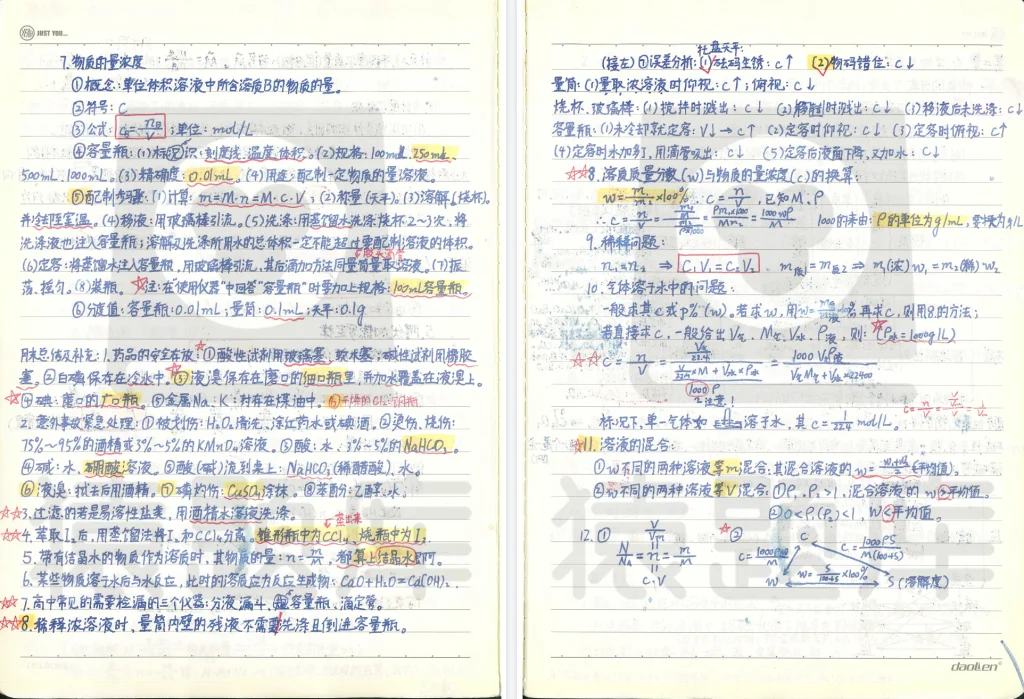 JUST YOU...
7.物质的量浓度
①概念:单位体积溶液中所含溶质B的物质的量。
②符号:C
③公式: ;单位:mol/L
④容量瓶:(1)标识:刻度线、温度、体积。(2)规格:100mL、250mL、
500mL、1000mL。(3)精确度:0.01mL。(4)用途:配制一定物质的量溶液。
⑤配制步骤:(1)计算:m=M·n=M·C·V;(2)称量(天平)。(3)溶解(烧杯),
并冷却至室温。(4)移液:用玻璃棒引流。(5)洗涤:用蒸馏水洗涤烧杯2~3次,将
洗涤液也注入容量瓶;溶解及洗涤所用水的总体积一定不能超过要配制溶液的体积。
(6)定容:将蒸馏水注入容量瓶,用玻璃棒引流,其后滴加方法同量筒量取溶液。(7)振
荡、摇匀。(8)装瓶。☆注:在使用仪器中回答“容量瓶”时要加上规格:100mL容量瓶。
⑥分度值:容量瓶:0.01mL;量筒:0.1mL;天平:0.1g
期末总结及补充:1.药品的安全存放:①酸性试剂用玻璃塞,软木塞;碱性试剂用橡胶
塞。②白磷保存在冷水中。③液溴保存在磨口的细口瓶里,并加水覆盖在液溴上。
④碘:磨口的广口瓶。⑤金属Na、K:封存在煤油中。
2.意外事故紧急处理:①被划伤:H₂O₂清洗,涂红药水或碘酒。②烫伤,烧伤:
75%~95%的酒精或3%~5%的KMnO₄溶液。③酸:水,3%~5%的NaHCO₃。
④碱:水,硼酸溶液。⑤酸(碱)流到桌上:NaHCO₃(稀醋酸),水。
⑥液溴:拭去后用酒精。⑦磷灼伤:CuSO₄涂抹。⑧苯酚:乙醇,水;
☆☆3.过滤的若是易溶性盐类,用酒精水溶液洗涤。
蒸出来
☆4.萃取I₂后,用蒸馏法将I₂和CCl₄分离。锥形瓶中为CCl₄,烧瓶中为I₂
5.带有结晶水的物质作为溶质时,其物质的量:n=m/M,都算上结晶水即可。
6.某些物质溶于水后与水反应,此时的溶质应为反应生成物:CaO+H₂O=Ca(OH)₂
☆☆7.高中常见的需要检漏的三个仪器:分液漏斗,容量瓶,滴定管。
☆☆8.稀释浓溶液时,量筒内壁的残液不需要洗涤且倒进容量瓶。
托盘天平:
(接左)⑦误差分析:(1)砝码生锈:c↑ (2)物码错位:c↓
量筒:(1)量取浓溶液时仰视:c↑;俯视:c↓
烧杯、玻璃棒:(1)搅拌时溅出:c↓ (2)移液时溅出:c↓ (3)移液后未洗涤:c↓
容量瓶:(1)未冷却就定容:V↓→c↑ (2)定容时仰视:c↓ (3)定容时俯视:c↑
(4)定容时水加多,用滴管吸出:c↓ (5)定容后液面下降,又加水:c↓
☆☆8.溶质质量分数(w)与物质的量浓度(c)的换算:
w= ×100% ∵c=n/V,已知M、ρ
∴c=n/V= = =1000wρ/M 1000的来由:ρ的单位为g/mL,要换为g/L
9.稀释问题:
n₁=n₂ ⇒ C₁V₁=C₂V₂ m₁=m₂ ⇒ m₁(浓)w₁=m₂(稀)w₂
10.气体溶于水中的问题:
一般求其c或p%(w)。若求w,用w= 再求c,则用8.的方法;
若直接求c,一般给出V气、M气、V水、ρ液,则:(ρ水=1000g/L)
☆☆ c=n/V= = 1000V气ρ液/(V气M气+V水×22400)
1000ρ
注意!
标况下,单一气体如 溶于水,其c=1/22.4 mol/L。
☆11.溶液的混合:
①w不同的两种溶液等m混合,其混合溶液的w=(w₁+w₂)/2(平均值)。
②w不同的两种溶液等V混合:①ρ₁、ρ₂>1,混合溶液的w>平均值。
②0<ρ₁(ρ₂)<1,w<平均值。
12.① V/Vm ☆② c c=1000ρS/M(100+S)
N/NA=n=m/M c=1000ρw/M
c·V w w=S/(100+S)×100% S(溶解度)
猿题库
daolien